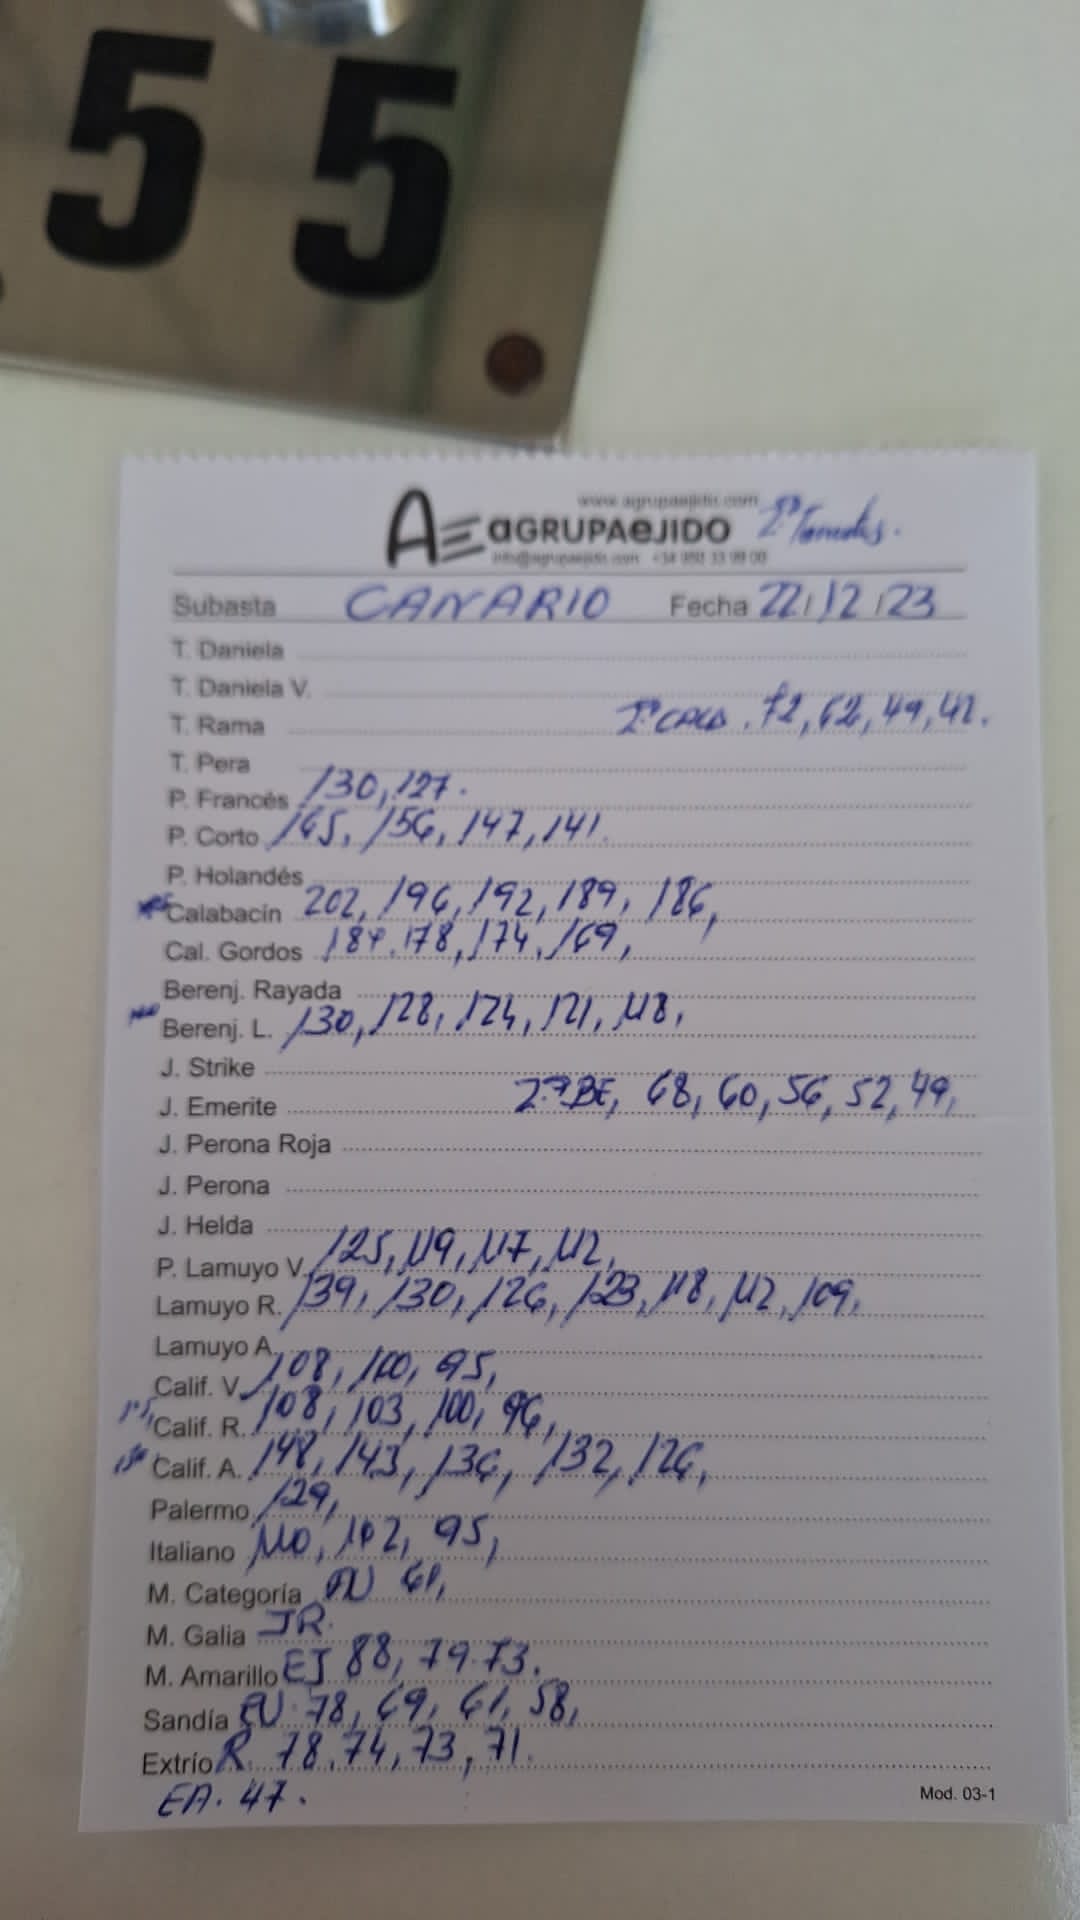 55
www.agrupaejido.com
AE aGRUPAeJIDO 2ª Tomates.
info@agrupaejido.com +34 950 33 99 00
Subasta CANARIO Fecha 22/12/23
T. Daniela
T. Daniela V.
T. Rama 2ª CALA. 72, 62, 49, 42.
T. Pera
P. Francés 130, 127.
P. Corto 165, 156, 147, 141.
P. Holandés
Calabacín 202, 196, 192, 189, 186,
Cal. Gordos 184. 178, 174. 169,
Berenj. Rayada
Berenj. L. 130, 128, 124, 121, 118,
J. Strike
J. Emerite 2ª BE, 68, 60, 56, 52, 49,
J. Perona Roja
J. Perona
J. Helda
P. Lamuyo V. 125, 119, 117, 112,
Lamuyo R. 139, 130, 126, 123, 118, 112, 109,
Lamuyo A.
Calif. V. 108, 100, 95,
Calif. R. 108, 103, 100, 96,
Calif. A. 148, 143, 136, 132, 126,
Palermo 129,
Italiano 110, 102, 95,
M. Categoría 61,
M. Galia JR.
M. Amarillo EJ 88, 79. 73.
Sandía EU. 78, 69, 61, 58,
Extrío R. 78. 74, 73, 71.
EA. 47.
Mod. 03-1